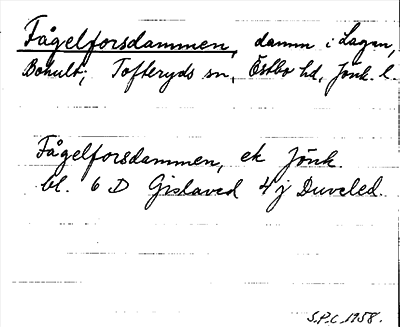 Fågelforsdammen, damm i Lagan,
Bohult; Tofteryds sn, Östbo hd, Jönk. l.
Fågelforsdammen, ek Jönk.
bl. 6 D Gislaved 4j Duveled.
S.P.C. 1958.